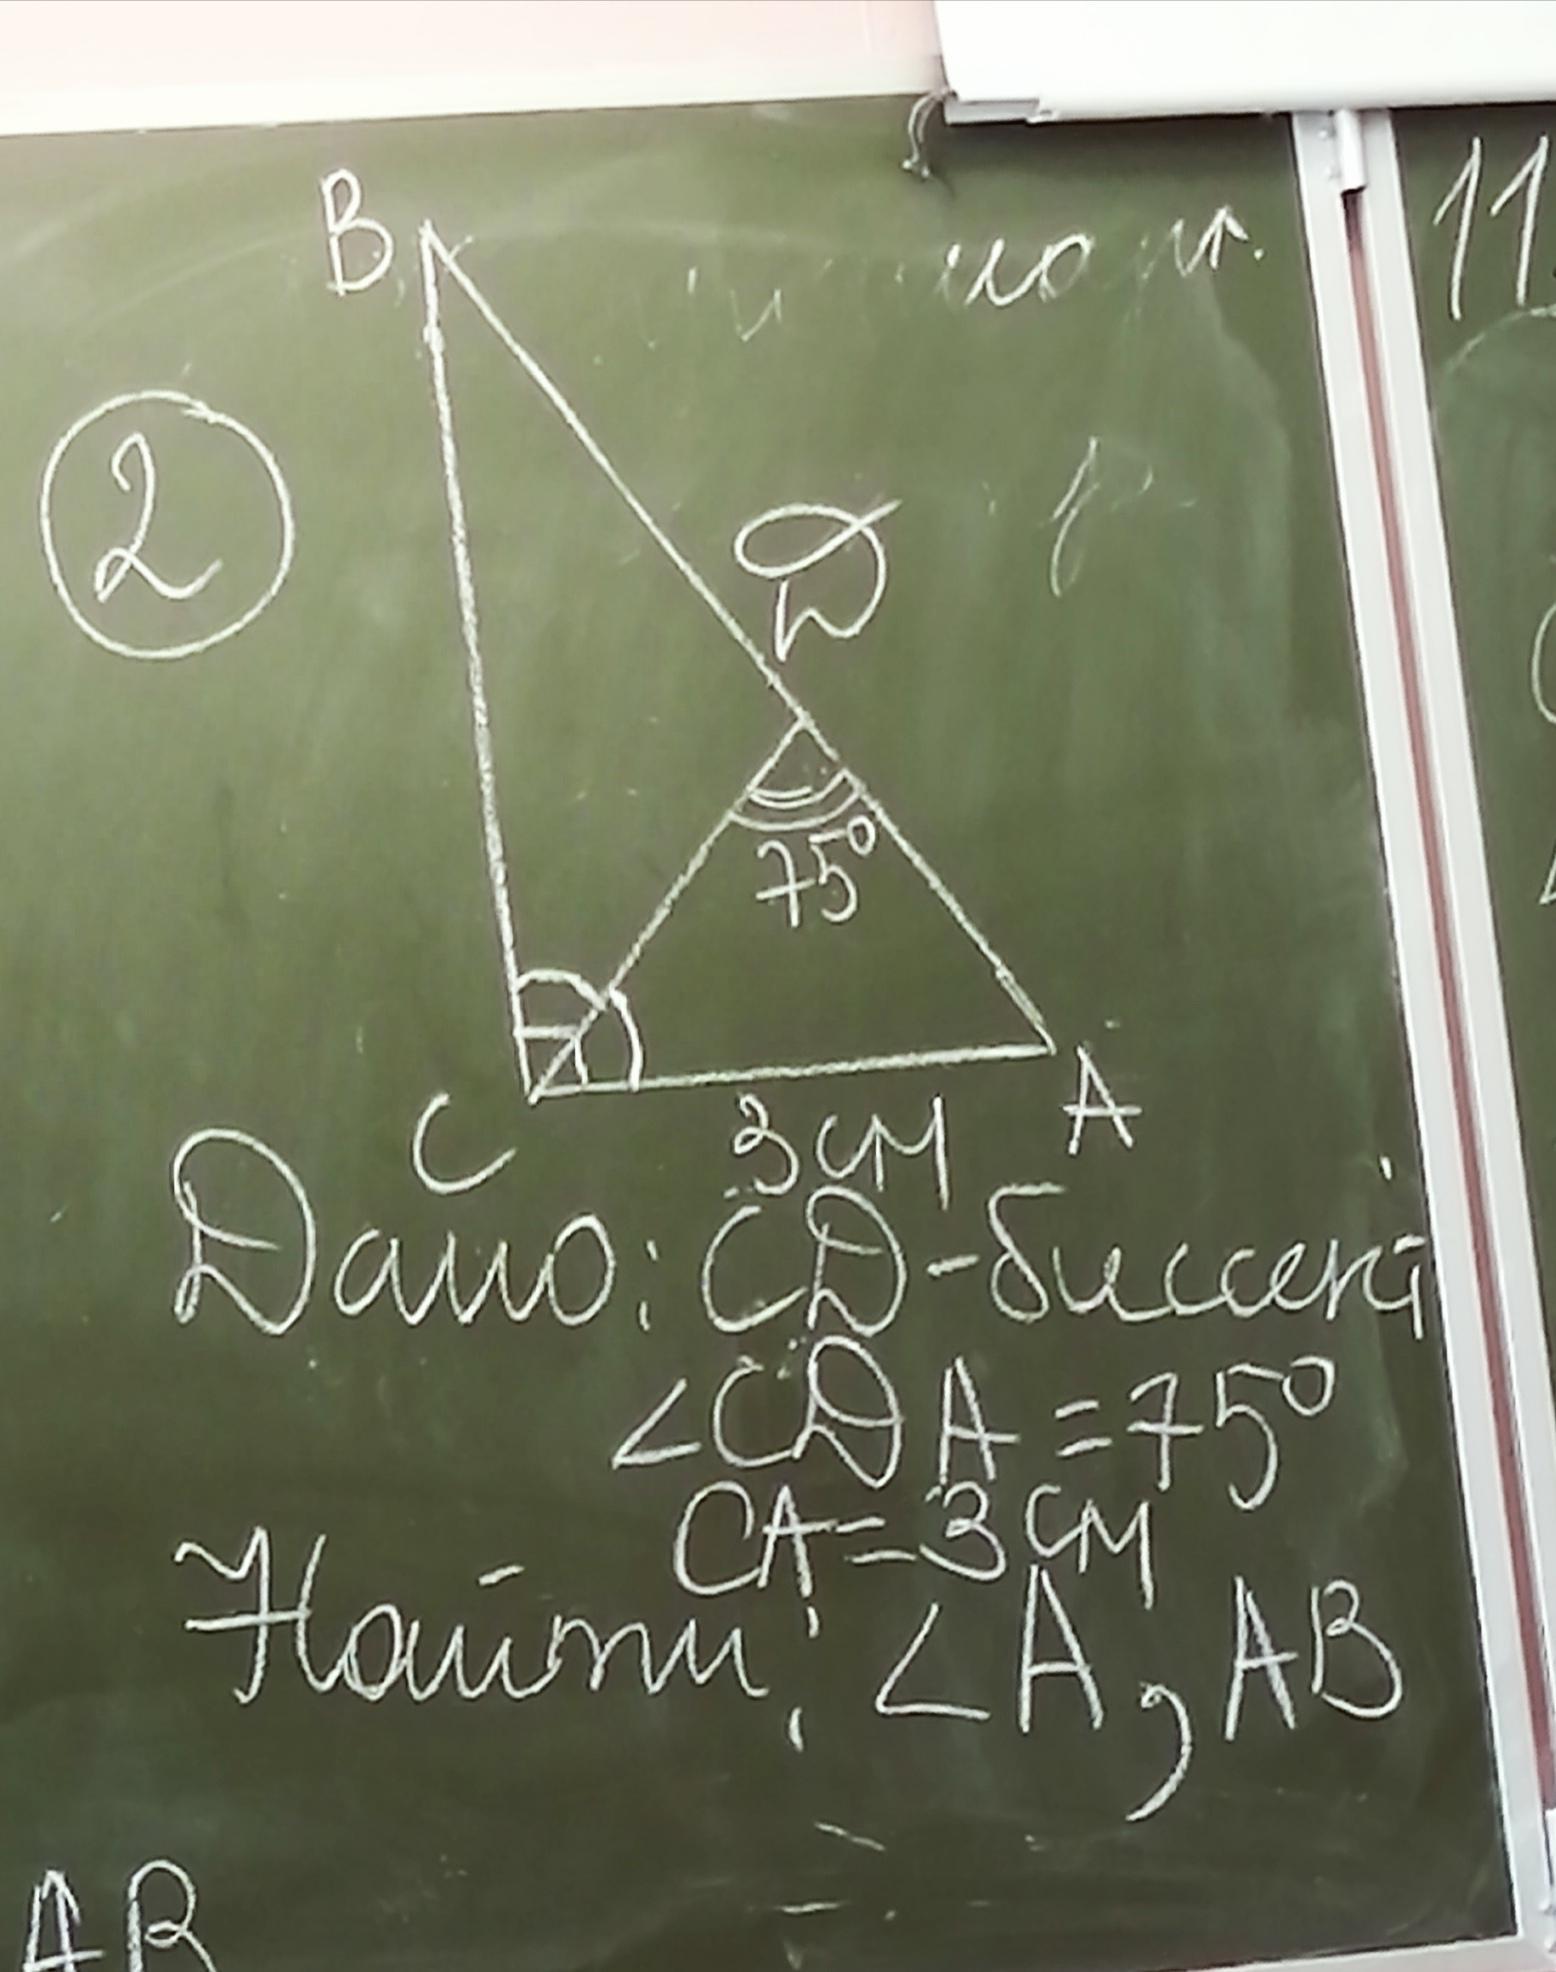 11
B
2
D
75°
C
A
3 см
Дано: CD - биссект
∠CDA = 75°
CA = 3 см
Найти: ∠A, AB
AB